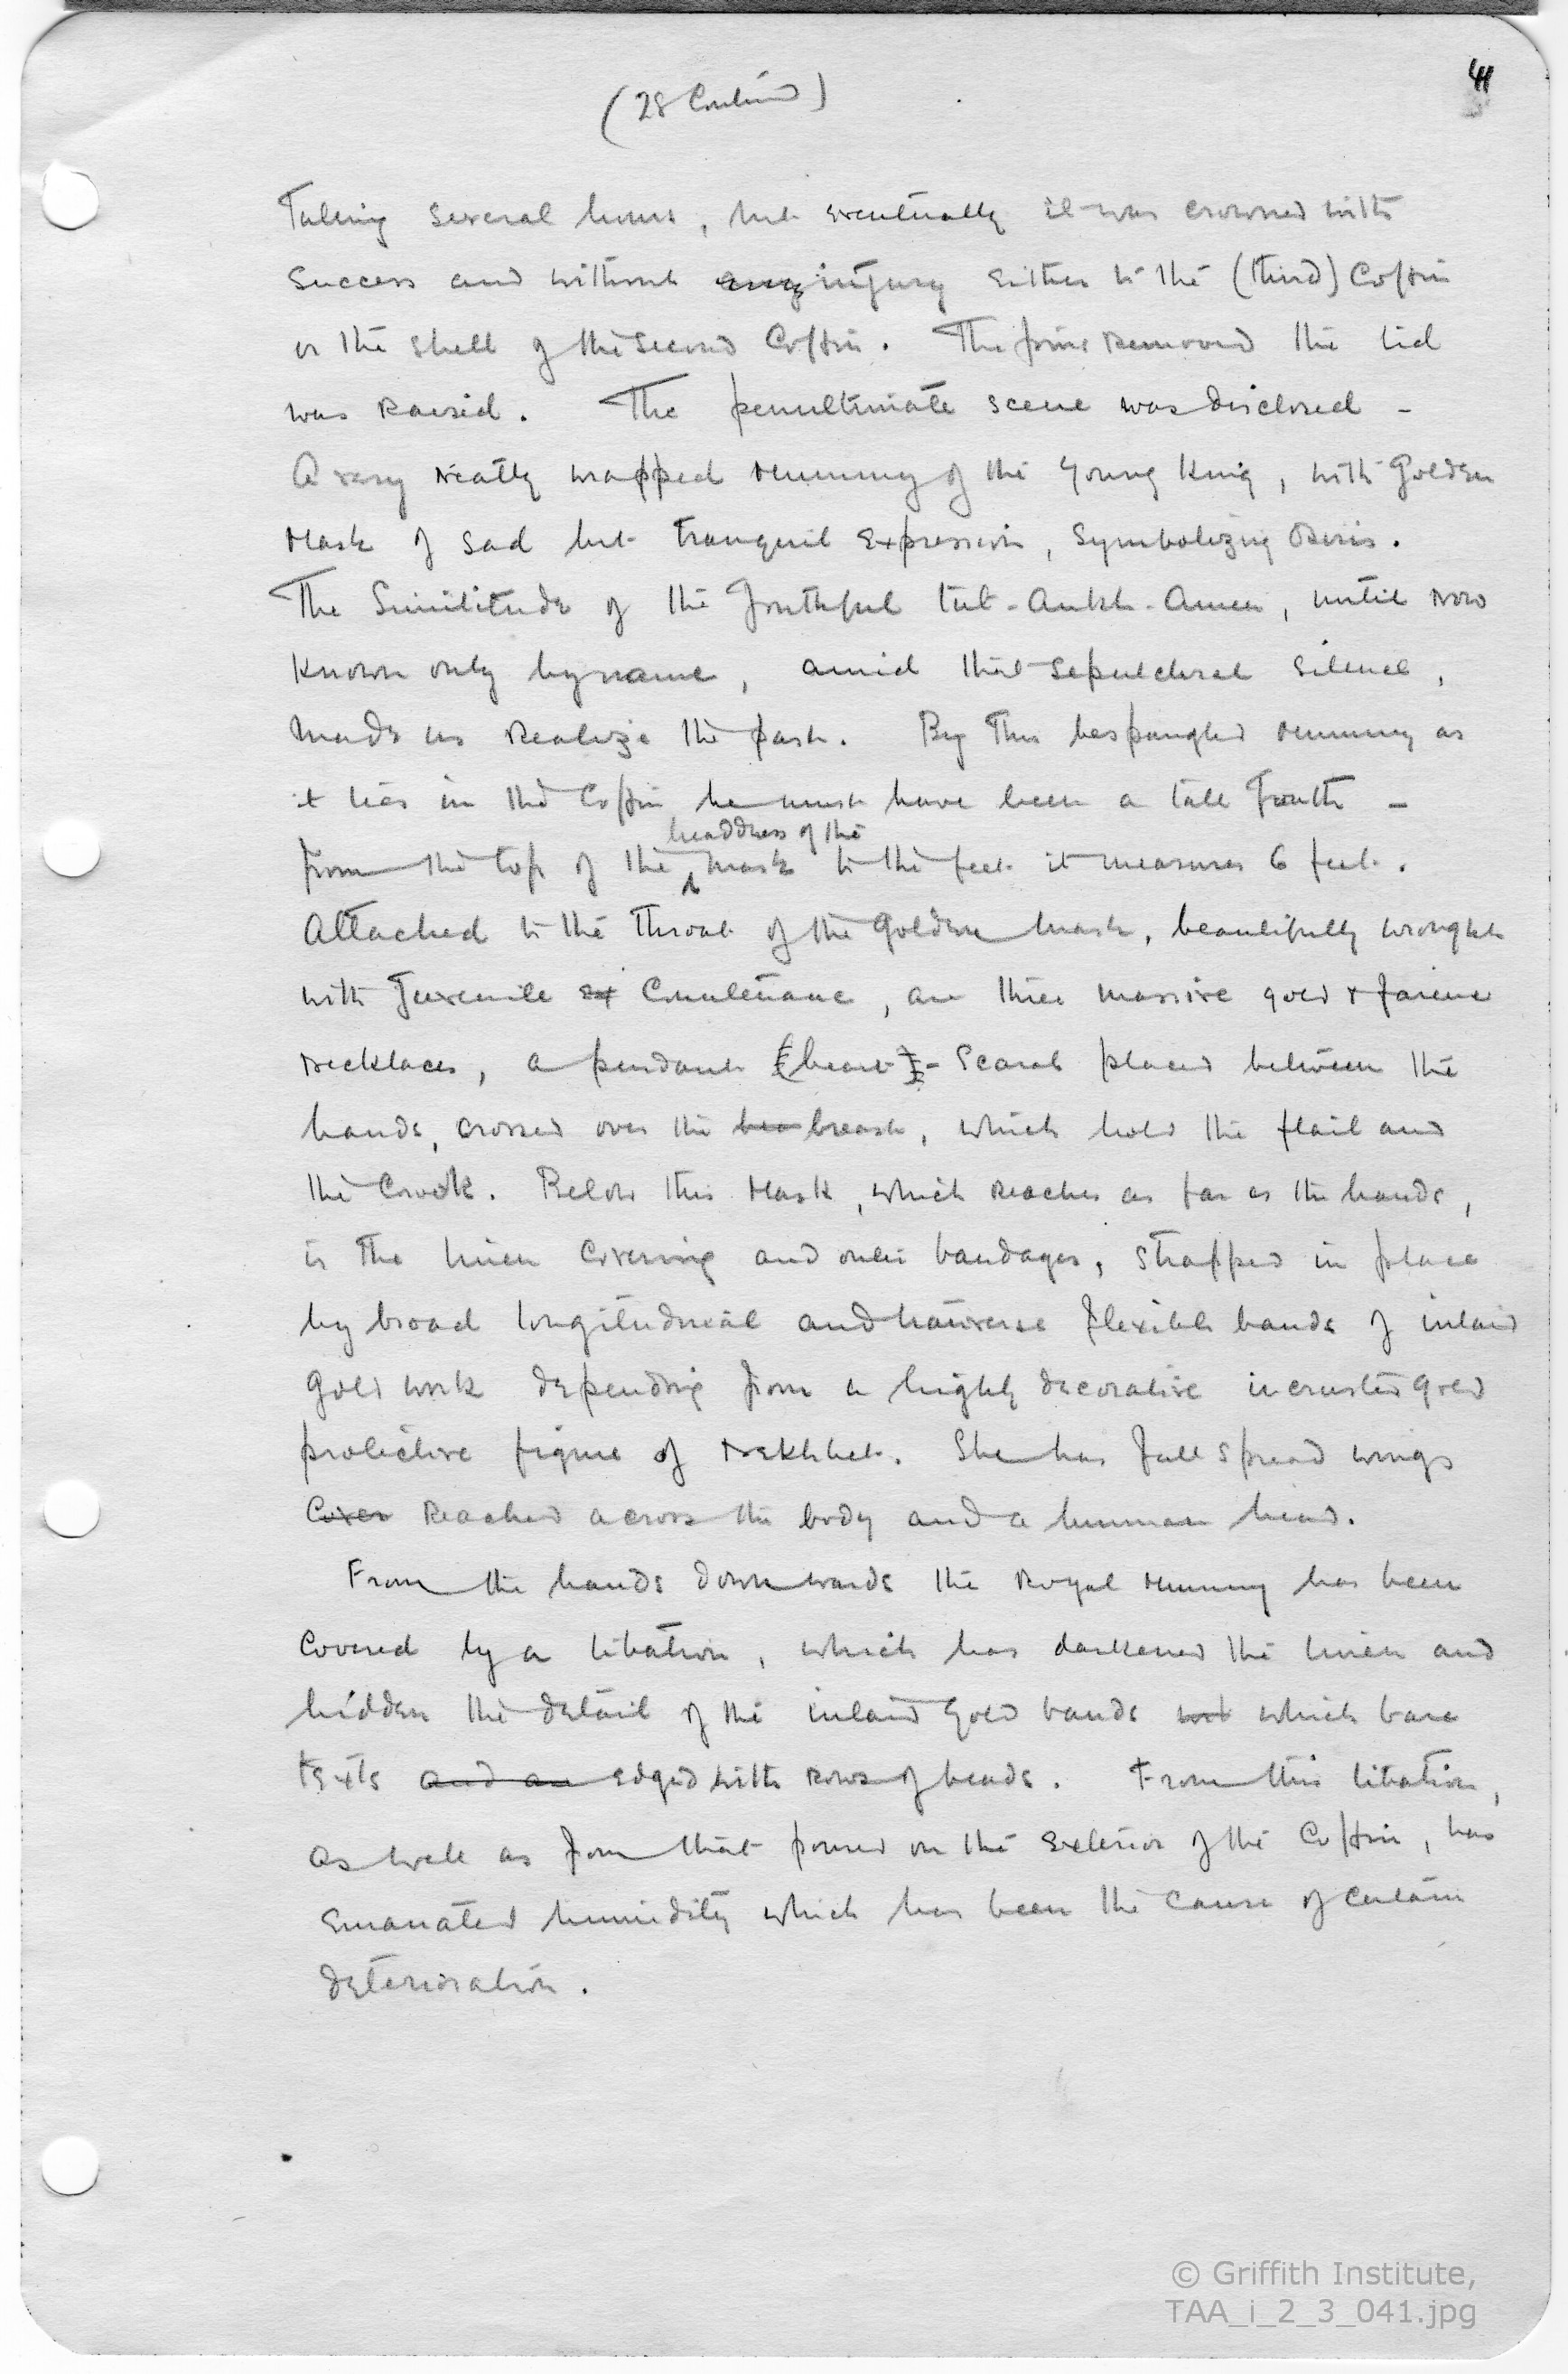 41
(28 Continued)
Taking several hours, but eventually it was crowned with
success and without any injury either to the (third) Coffin
or the shell of the second Coffin. The pins removed the lid
was raised. The penultimate scene was disclosed –
A very neatly wrapped mummy of the young king, with golden
mask of sad but tranquil expression, symbolizing Osiris.
The similitude of the youthful Tut-Ankh-Amen, until now
known only by name, amid that sepulchral silence,
made us realize the past. By this bespangled mummy as
it lies in the Coffin he must have been a tall youth –
headdress of the
from the top of the mask to the feet it measures 6 feet.
Attached to the throat of the golden mask, beautifully wrought
with juvenile ex Countenance, are three massive gold & faience
necklaces, a pendant (heart)-Scarab placed between the
hands, crossed over the bea breast, which hold the flail and
the Crook. Below this mask, which reaches as far as the hands,
is the linen Covering and outer bandages, strapped in place
by broad longitudinal and transverse flexible bands of inlaid
gold work depending from a highly decorative incrusted gold
protective figure of Nekhbet. She has full spread wings
Cover reached across the body and a human head.
From the hands downwards the Royal mummy has been
Covered by a libation, which has darkened the linen and
hidden the detail of the inlaid gold bands which bare
texts and are edged with rows of beads. From this libation,
as well as from that poured on the exterior of the Coffin, has
emanated humidity which has been the cause of certain
deterioration.
© Griffith Institute,
TAA_i_2_3_041.jpg